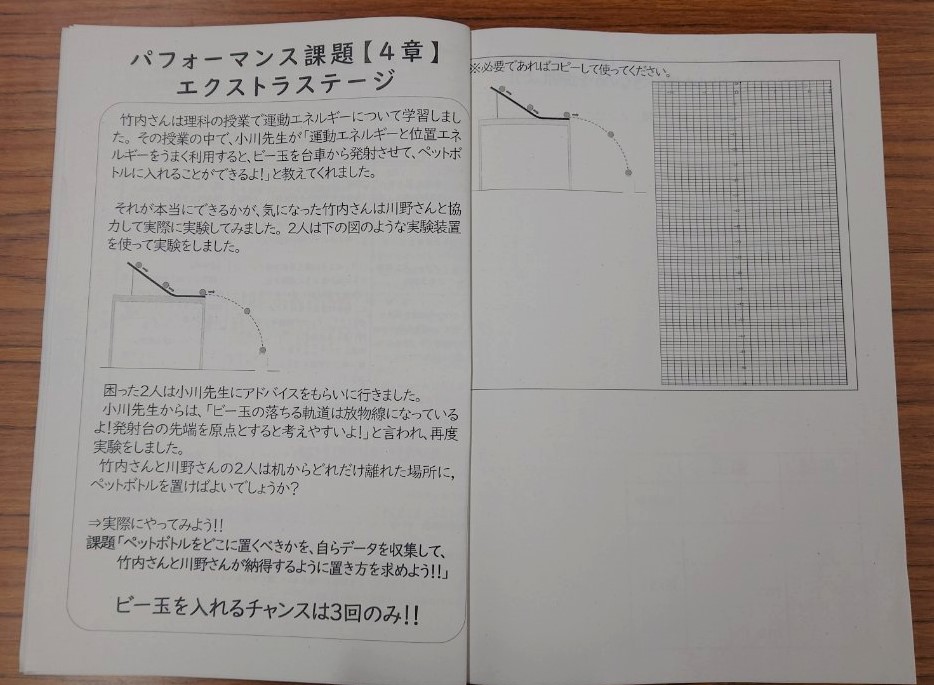 パフォーマンス課題【4章】
エクストラステージ
竹内さんは理科の授業で運動エネルギーについて学習しまし
た。その授業の中で、小川先生が「運動エネルギーと位置エネ
ルギーをうまく利用すると、ビー玉を台車から発射させて、ペットボ
トルに入れることができるよ!」と教えてくれました。
それが本当にできるかが、気になった竹内さんは川野さんと協
力して実際に実験してみました。2人は下の図のような実験装置
を使って実験をしました。
困った2人は小川先生にアドバイスをもらいに行きました。
小川先生からは、「ビー玉の落ちる軌道は放物線になっている
よ!発射台の先端を原点とすると考えやすいよ!」と言われ、再度
実験をしました。
竹内さんと川野さんの2人は机からどれだけ離れた場所に,
ペットボトルを置けばよいでしょうか?
⇒実際にやってみよう!!
課題「ペットボトルをどこに置くべきかを、自らデータを収集して、
竹内さんと川野さんが納得するように置き方を求めよう!!」
ビー玉を入れるチャンスは3回のみ!!
※必要であればコピーして使ってください。